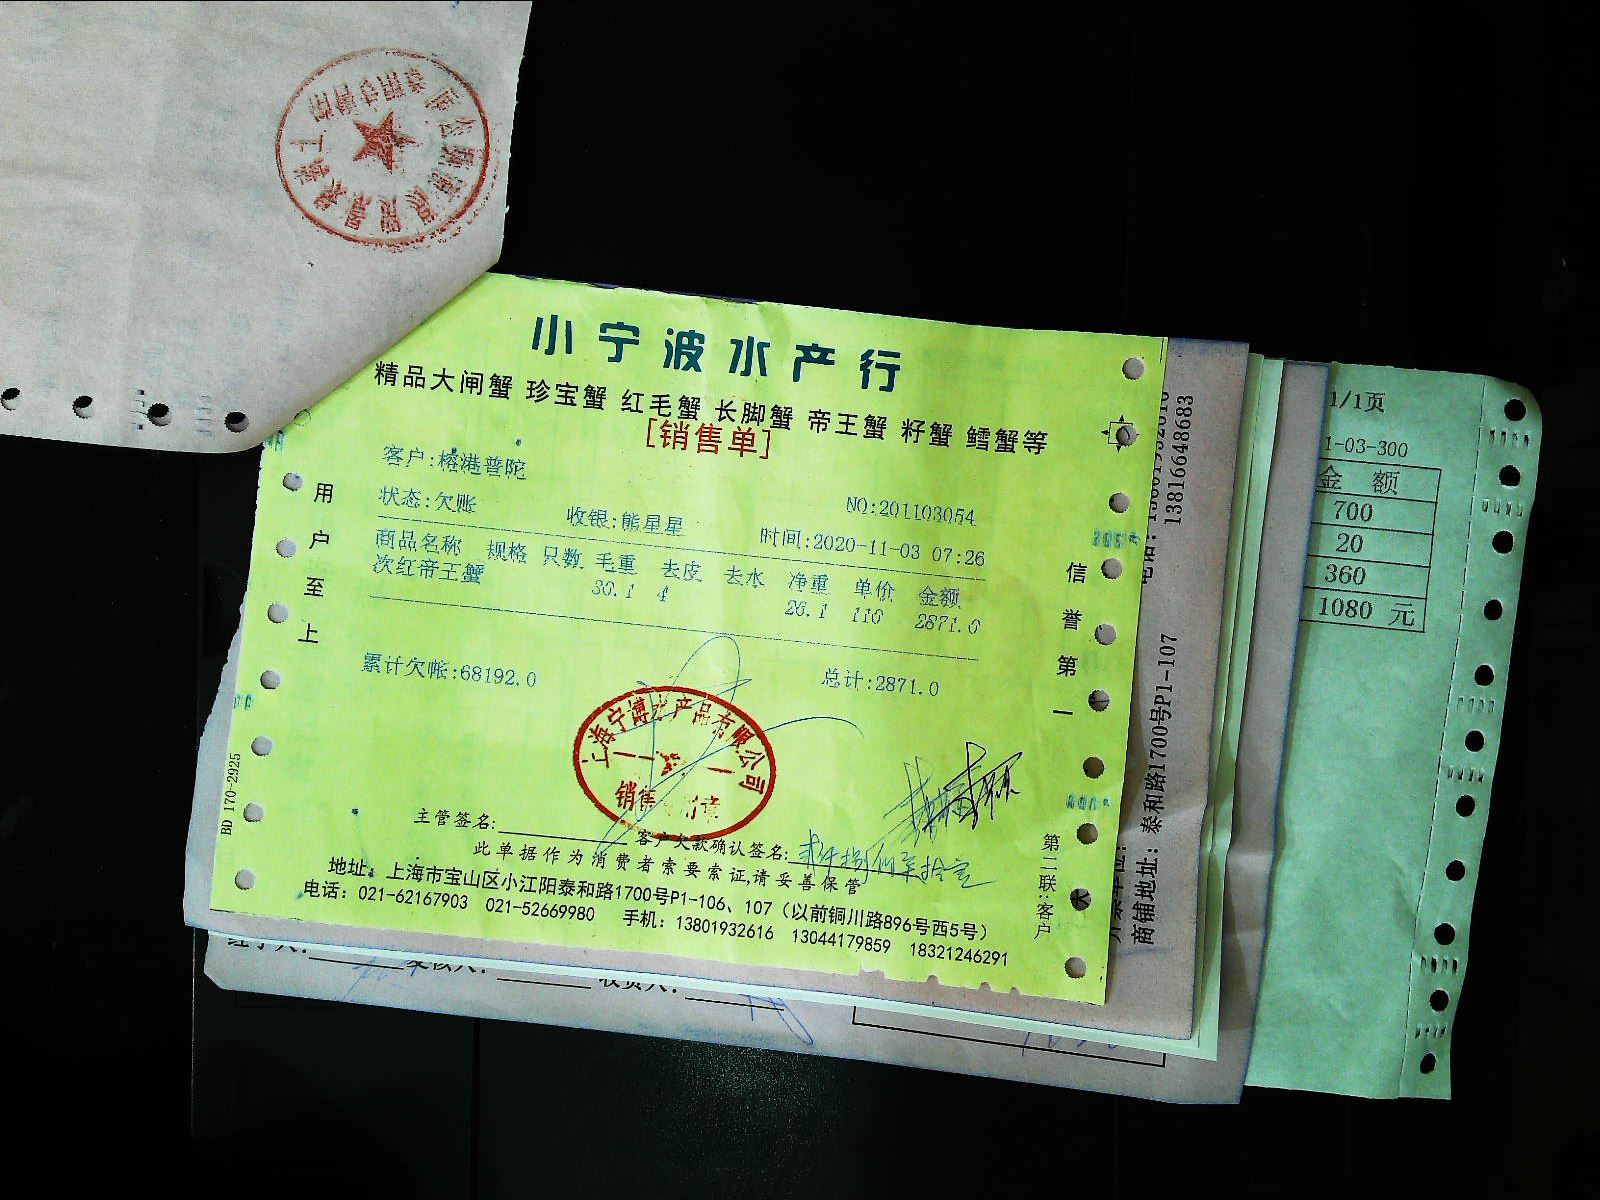 小宁波水产行
精品大闸蟹 珍宝蟹 红毛蟹 长脚蟹 帝王蟹 籽蟹 鳕蟹等
[销售单]
客户:榕港普陀
状态:欠账 收银:熊星星 NO:201103054
时间:2020-11-03 07:26
商品名称 规格 只数 毛重 去皮 去水 净重 单价 金额
次红帝王蟹 30.1 4 26.1 110 2871.0
累计欠帐:68192.0 总计:2871.0
上海宁博水产品有限公司
销售
主管签名: 客户欠款确认签名:
此单据作为消费者索要索证,请妥善保管
地址: 上海市宝山区小江阳泰和路1700号P1-106、107（以前铜川路896号西5号）
电话: 021-62167903 021-52669980 手机: 13801932616 13044179859 18321246291
用户至上
信誉第一
第二联:客户
BD 170-2925
13816648683
商铺地址: 泰和路1700号P1-107
1/1页
1-03-300
金 额
700
20
360
1080 元